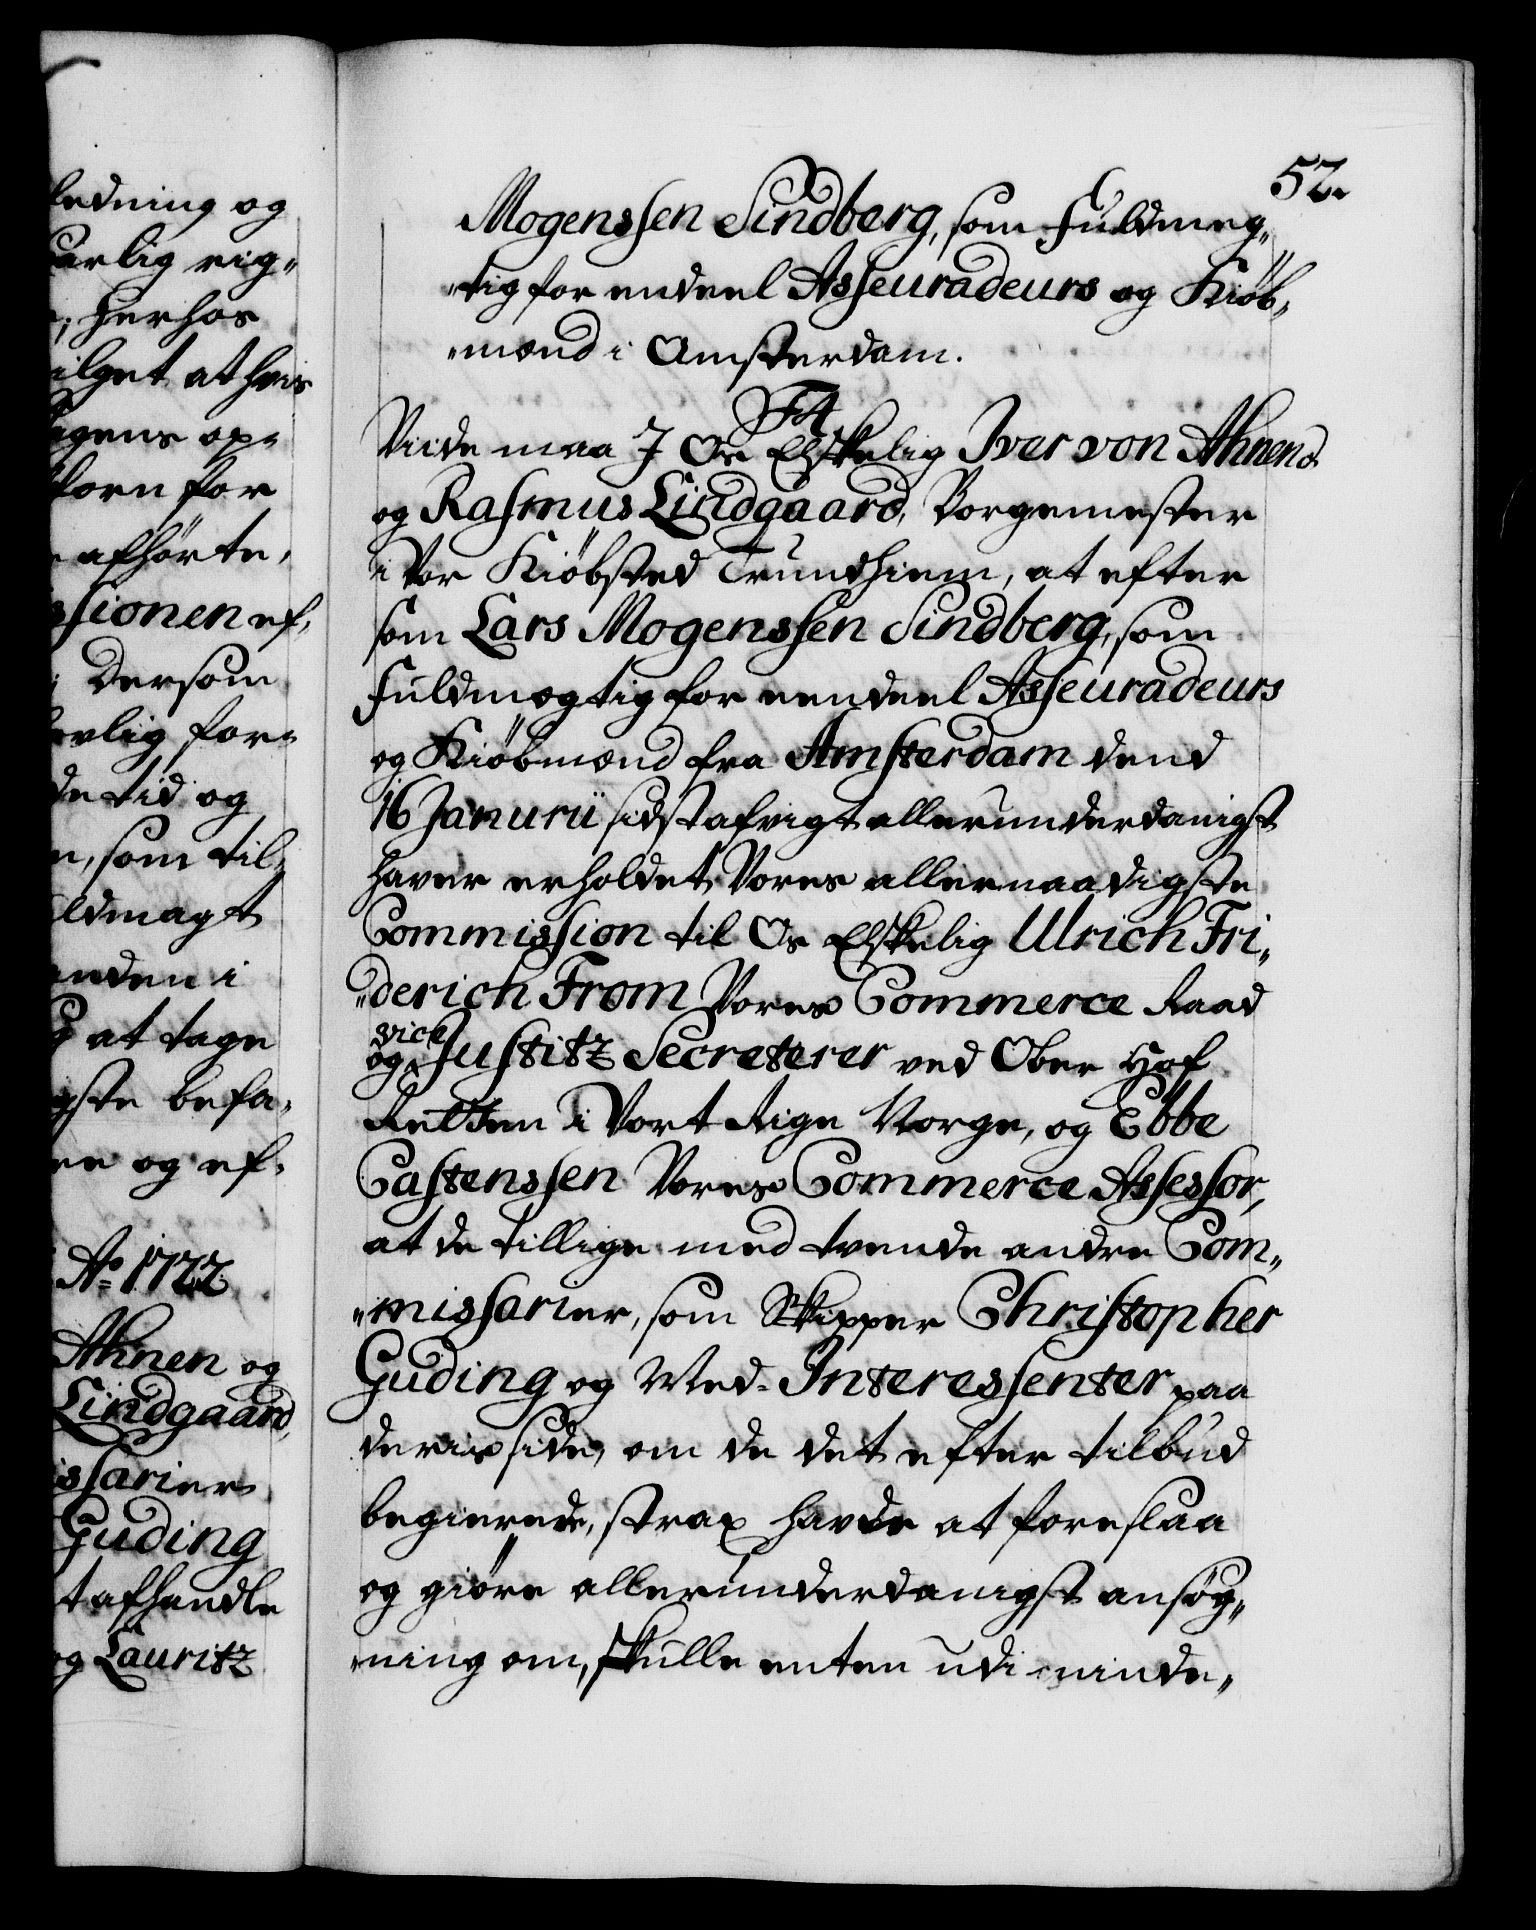 ledning og
arlig rig„
; herhos
ilget at hvis
agens op-
forn for
afhørte,
ssionen ef,
Dersom
ovlig for-
de tid og
n, som til-
ldmagt
anden i
g at tage
gste befa,
re og ef-
Aº 1722
Ahnen og
Lindgaard,
issarier
Guding
t afhandle
og Lauritz
52.
Mogenssen Sindberg, som Fuldmeg„
„tig for endeel Asseuradeurs og Kiöb„
„mænd i Amsterdam.
F4
Viide maa J Os Elskelig Iver von Ahnend
og Rasmus Lindgaard, Borgemester
i Vor Kiöbsted Trundhiem, at efter
som Lars Mogenssen Sindberg, som
Fuldmægtig for eendeel Asseuradeurs
og Kiöbmænd fra Amsterdam dend
16 Janurii sidst afvigt allerunderdanigst
haver erholdet Vores allernaadigste
Commission til Os Elskelig Ulrich Fri„
„derich From Vores Commerce Raad
og vice Justitz Secreterer ved Ober Hof
Retten i Vort Rige Norge, og Ebbe
Castenssen Vores Commerce Assessor,
at de tillige med tvende andre Com„
„missarier, som Skipper Christopher
Guding og Med-Interessenter paa
deris side, om de det efter tilbud
begierede, strax havde at foreslaa
og giöre allerunderdanigst ansög„
„ning om, skulle enten udi minde„